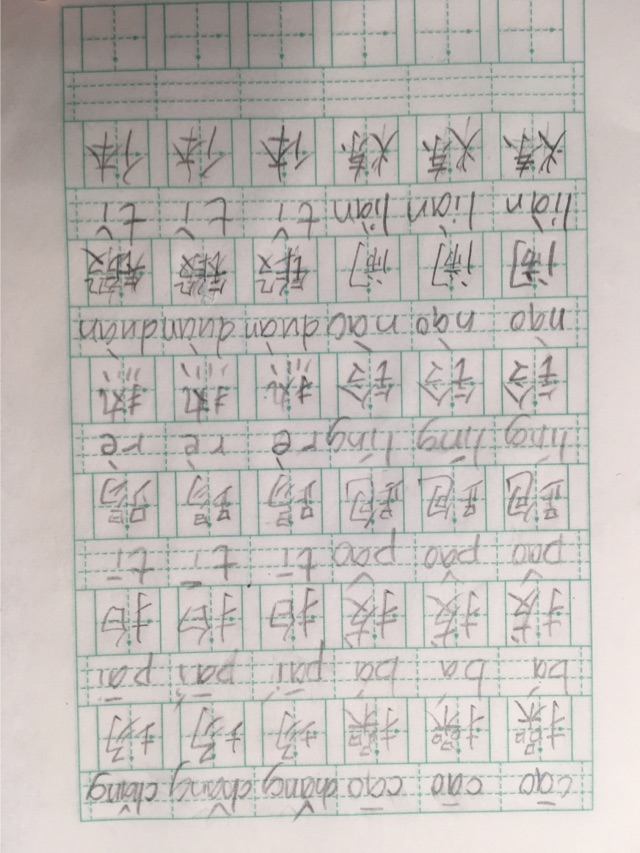 cāo cāo cāo chǎng chǎng chǎng
操 操 操 场 场 场
bá bá bá pāi pāi pāi
拔 拔 拔 拍 拍 拍
pǎo pǎo pǎo tī tī tī
跑 跑 跑 踢 踢 踢
líng líng líng rè rè rè
铃 铃 铃 热 热 热
nào nào nào duàn duàn duàn
闹 闹 闹 锻 锻 锻
liàn liàn liàn tǐ tǐ tǐ
炼 炼 炼 体 体 体